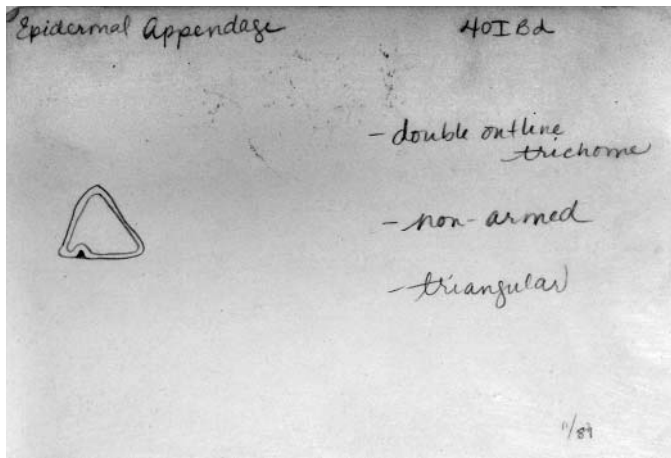 Epidermal Appendage
40IBd
- double outline
trichome
- non-armed
- triangular
11/89